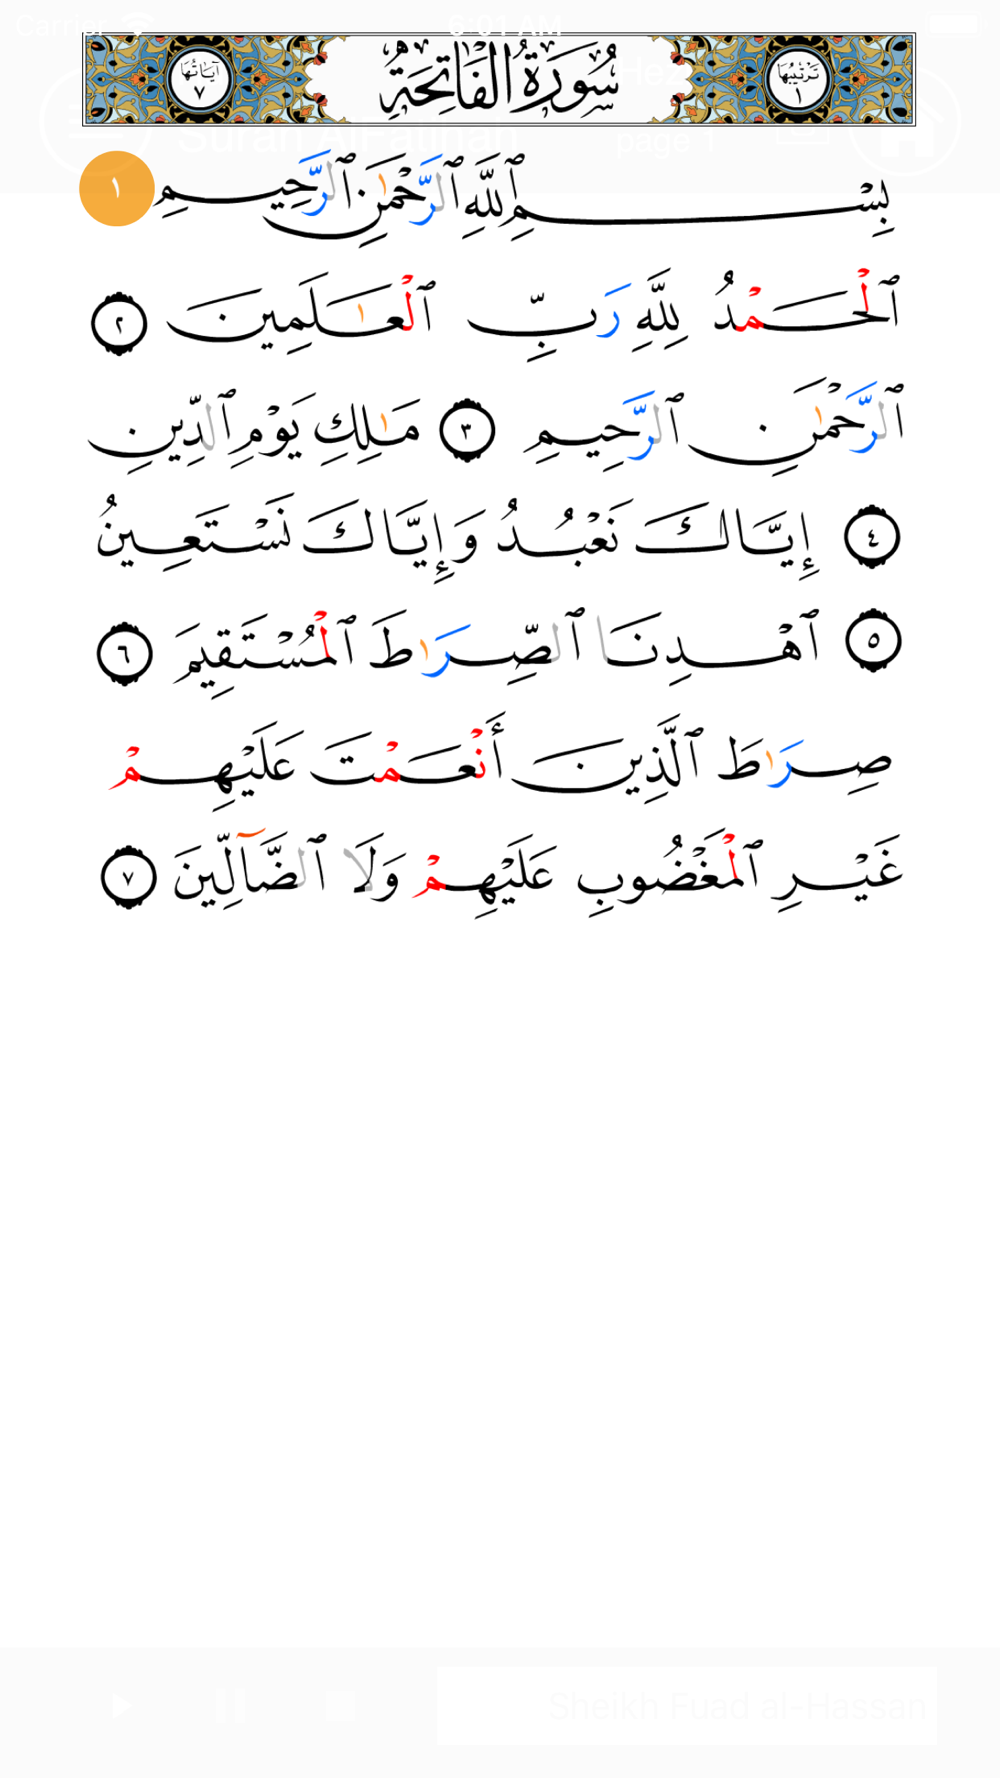 Carrier 6:01 AM
Surah AlFatihah page 1
تَرْتِيبُهَا ١ سُورَةُ الْفَاتِحَةِ آيَاتُهَا ٧
بِسْمِ ٱللَّهِ ٱلرَّحْمَٰنِ ٱلرَّحِيمِ ١
ٱلْحَمْدُ لِلَّهِ رَبِّ ٱلْعَٰلَمِينَ ٢
ٱلرَّحْمَٰنِ ٱلرَّحِيمِ ٣ مَٰلِكِ يَوْمِ ٱلدِّينِ
٤ إِيَّاكَ نَعْبُدُ وَإِيَّاكَ نَسْتَعِينُ
٥ ٱهْدِنَا ٱلصِّرَٰطَ ٱلْمُسْتَقِيمَ ٦
صِرَٰطَ ٱلَّذِينَ أَنْعَمْتَ عَلَيْهِمْ
غَيْرِ ٱلْمَغْضُوبِ عَلَيْهِمْ وَلَا ٱلضَّآلِّينَ ٧
Sheikh Fuad al-Hassan